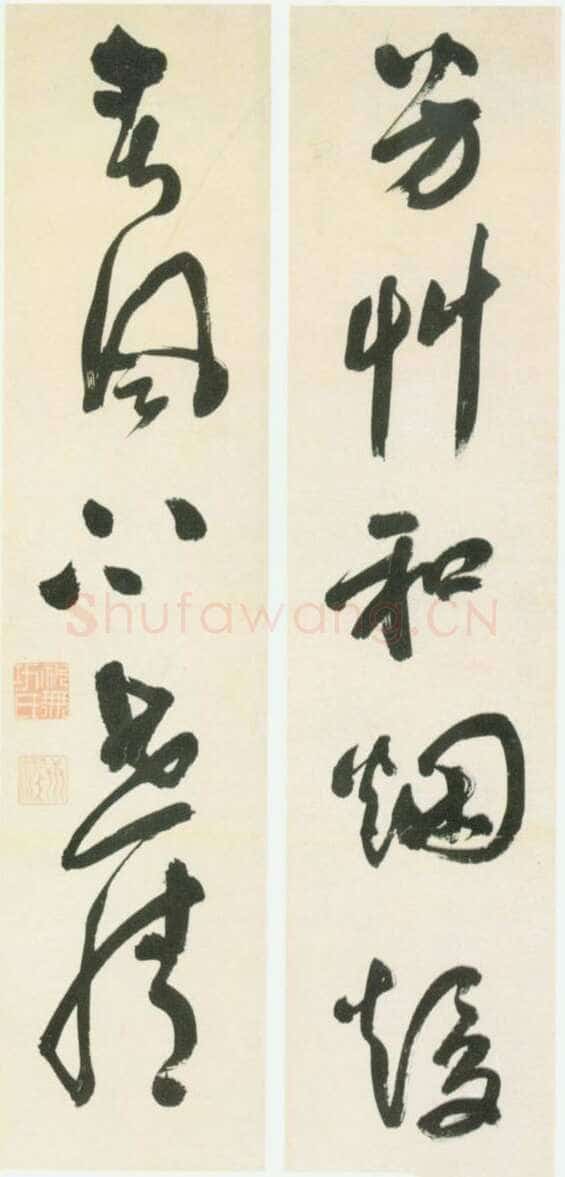 芳艸和烟煖
春風不世情
Shufawang.CN